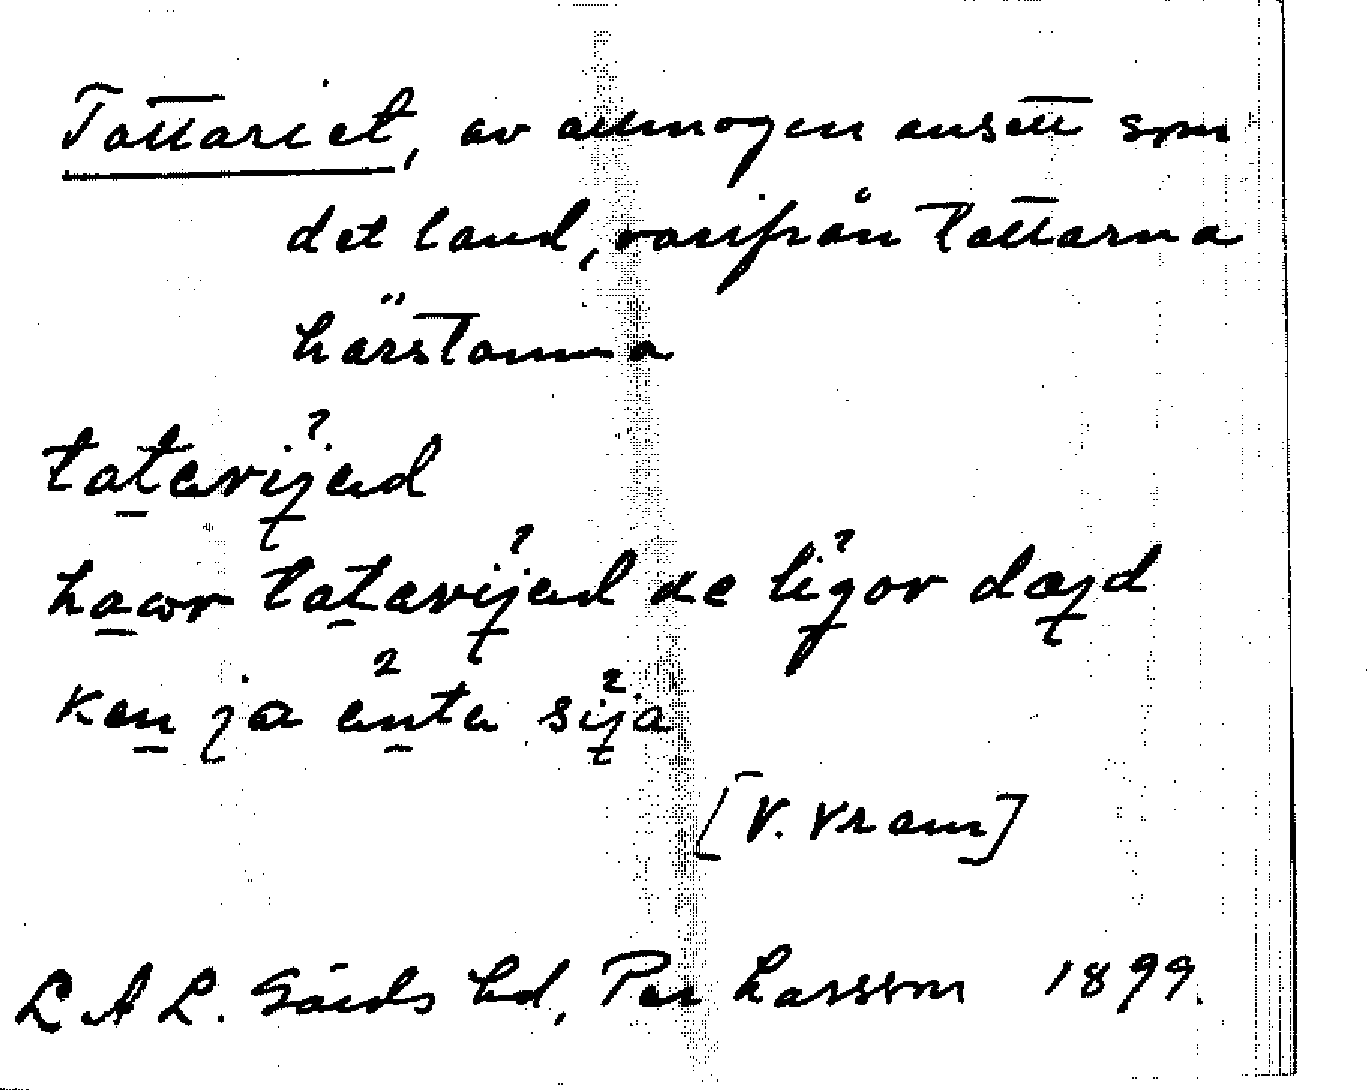 Tattariet, av allmogen ansett som
det land, varifrån tattarna
härstamma
tatarijed
hawr tatarijed de ligor dæjd
kan ja ante sija
[V. Vram]
L A L. Gärds hd, Per Larsson 1899.